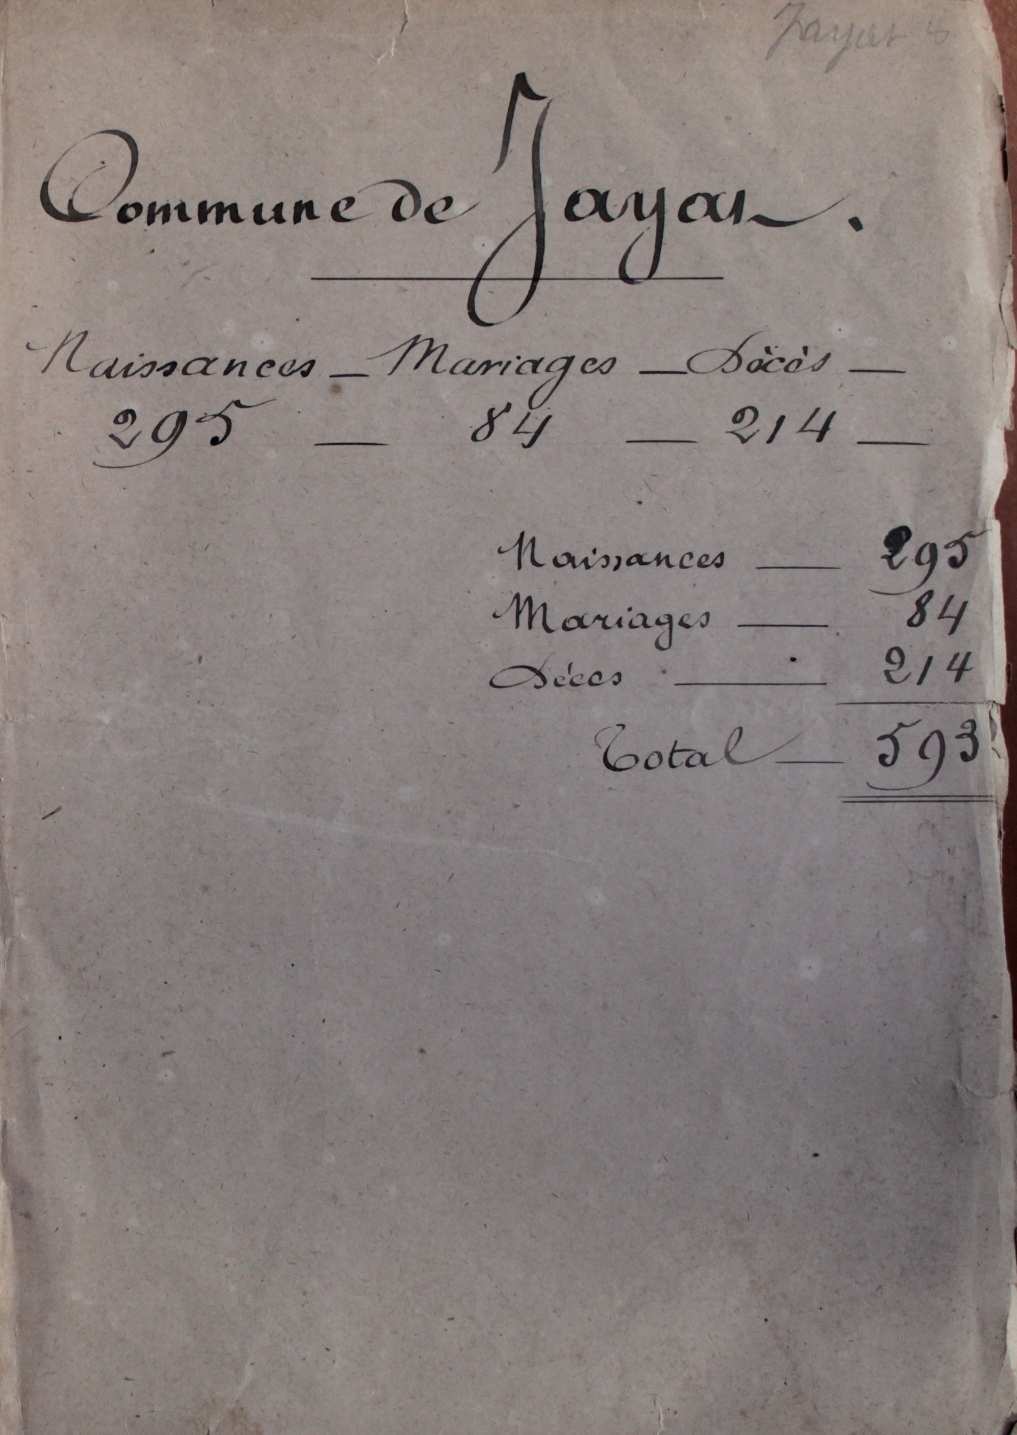 Jayat
Commune de Jayat.
Naissances — Mariages — Décès —
295 — 84 — 214 —
Naissances — 295
Mariages — 84
Décès — 214
Total — 593